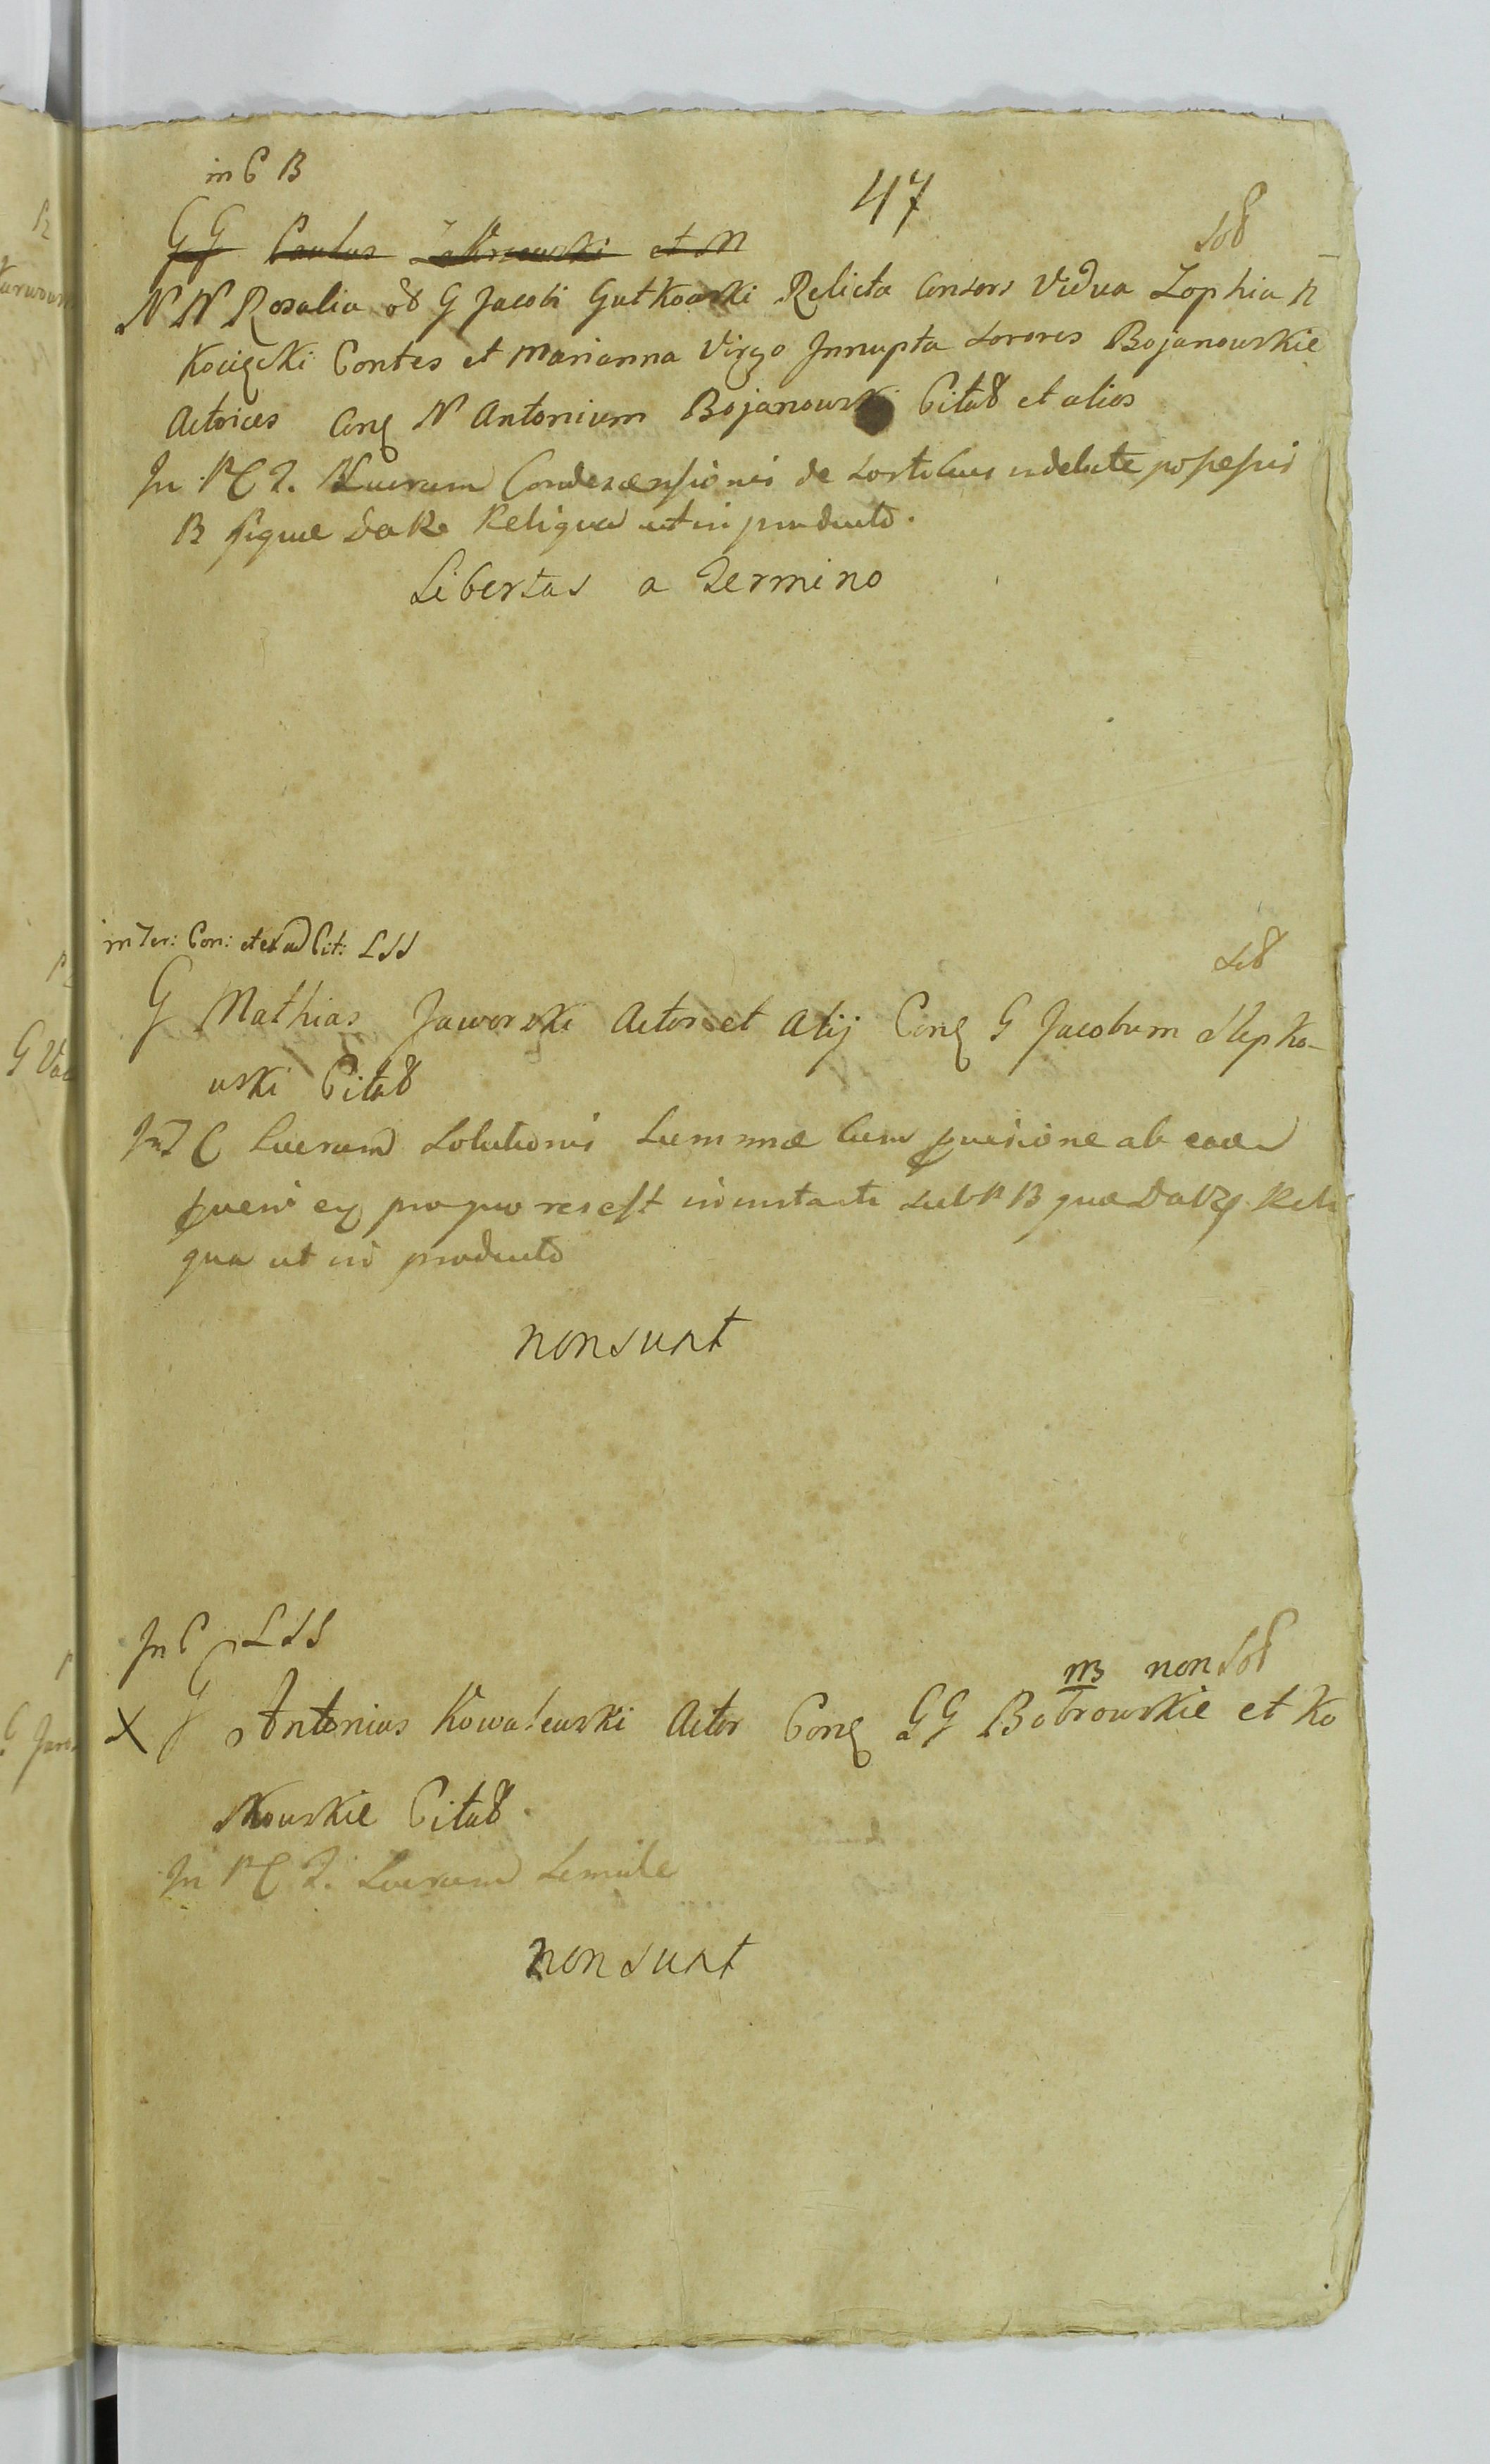 in C B
47
Sol
GG Paulus Zakrzewski et M
NN Rosalia G Jacobi Gutkowski Relicta Consors Vidua Zophia N
Kocięcki Contes et Marianna Virgo Innupta Sorores Bojanowskie
Actrices Conq N Antonium Bojanowski Citat et alios
In P C T. Lucrum Condescensionis de Sortibus indebite possessis
B sique Reliqua ut in producto.
Libertas a Termino
in Ter: Con: et ex ad Cit: LSS
Sol
G Mathias Jaworski Actor et Alij Conq G Jacobum Slepko-
wski Citat
C Lucrum Solutionis Summae Cum ab eade
pro quo res est in instanti sub P B qua Reli
qua ut in producto
non sunt
In C LSS
non Sol
X G Antonius Kowalewski Actor Conq GG Bobrowskie et Ko
skowskie Citat
In P C T. Lucrum Simile
non sunt